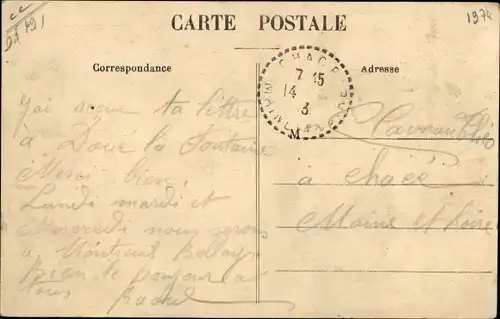 1974
CARTE POSTALE
Correspondance
Adresse
CHACE
7 15
14
3
J'ai reçue ta lettre
à Doué la Fontaine
Merci bien
Lundi mardi et
Mercredi nous serons
à Montreuil Bellay
Bien le bonjour à
tous
Raoul
à chacé
Maine et Loire